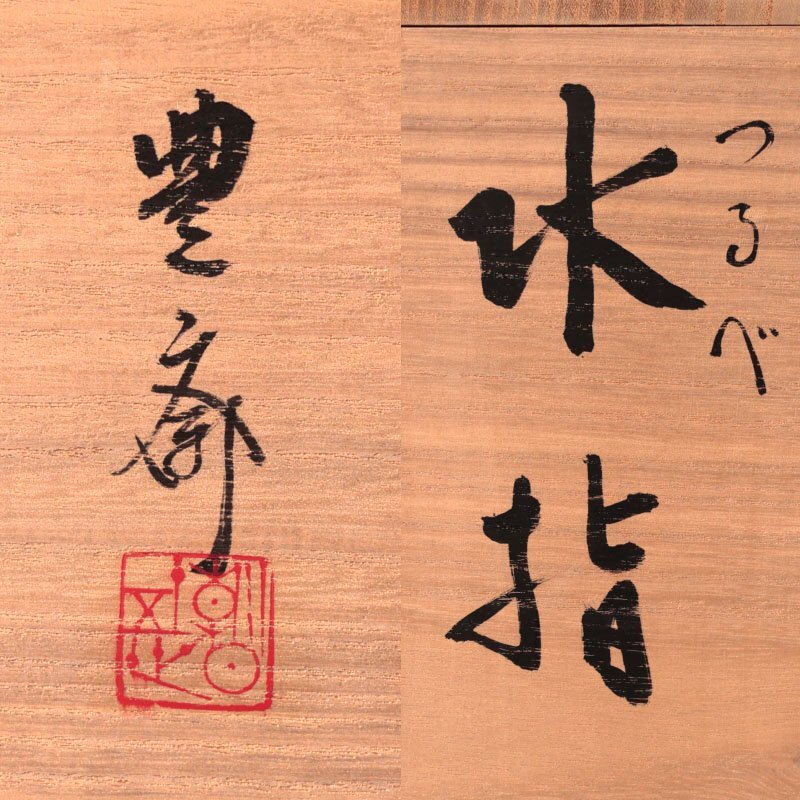 つるべ
水指
豊斎